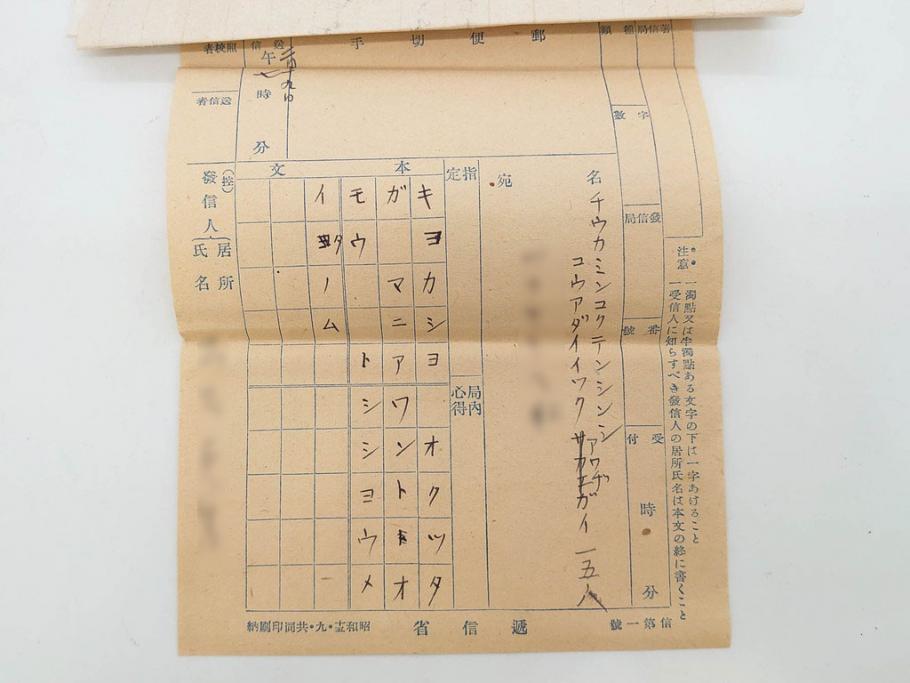 注意
一濁點又は半濁點ある文字の下は一字あけること
一受信人に知らすべき發信人の居所氏名は本文の終に書くこと
著信局
種類
字數
發信局
番號
受付
時
分
郵便切手
送信
午
時
分
照校者
送信者
宛名
チウカミンコクテンシンシ
コウアダイイツク
アワヂ
ガイ 一五八
指定
局內心得
本文
キヨカシヨ オクツタ
ガ マニアワントオ
モウ トシシヨウメ
イ タノム
(控)
發信人
居所
氏名
信第一號
遞信省
共同印刷納